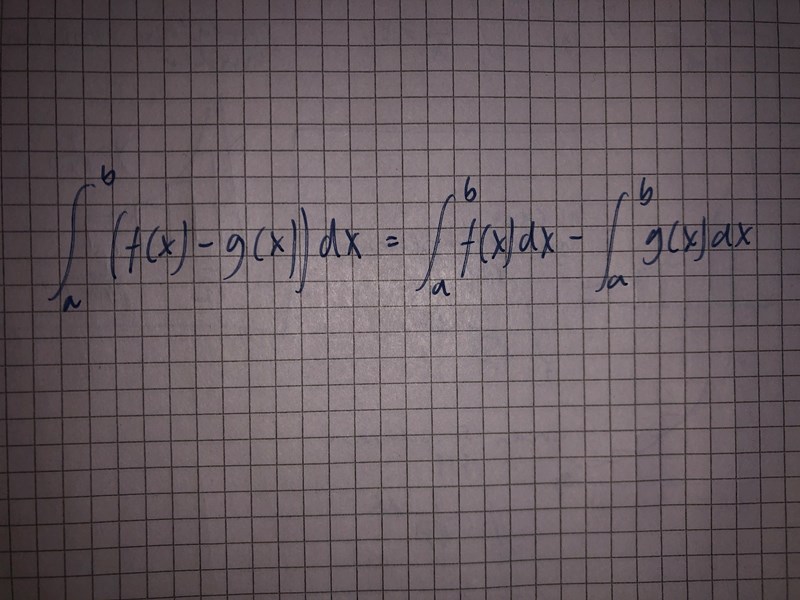 ∫_a^b (f(x) - g(x)) dx = ∫_a^b f(x) dx - ∫_a^b g(x) dx